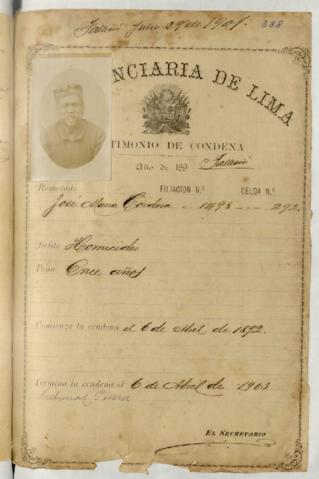 Falleció Julio 29 de 1901.
388
NCIARIA DE LIMA
TIMONIO DE CONDENA
Año de 189 Falleció
Rematado FILIACION N.º CELDA N.º
José Maria Cordova 1498 292
Delito Homicidio
Pena Once años
Comienza la condena el 6 de Abril de 1892.
Termina la condena el 6 de Abril de 1903
Tribunal Piura
EL SECRETARIO